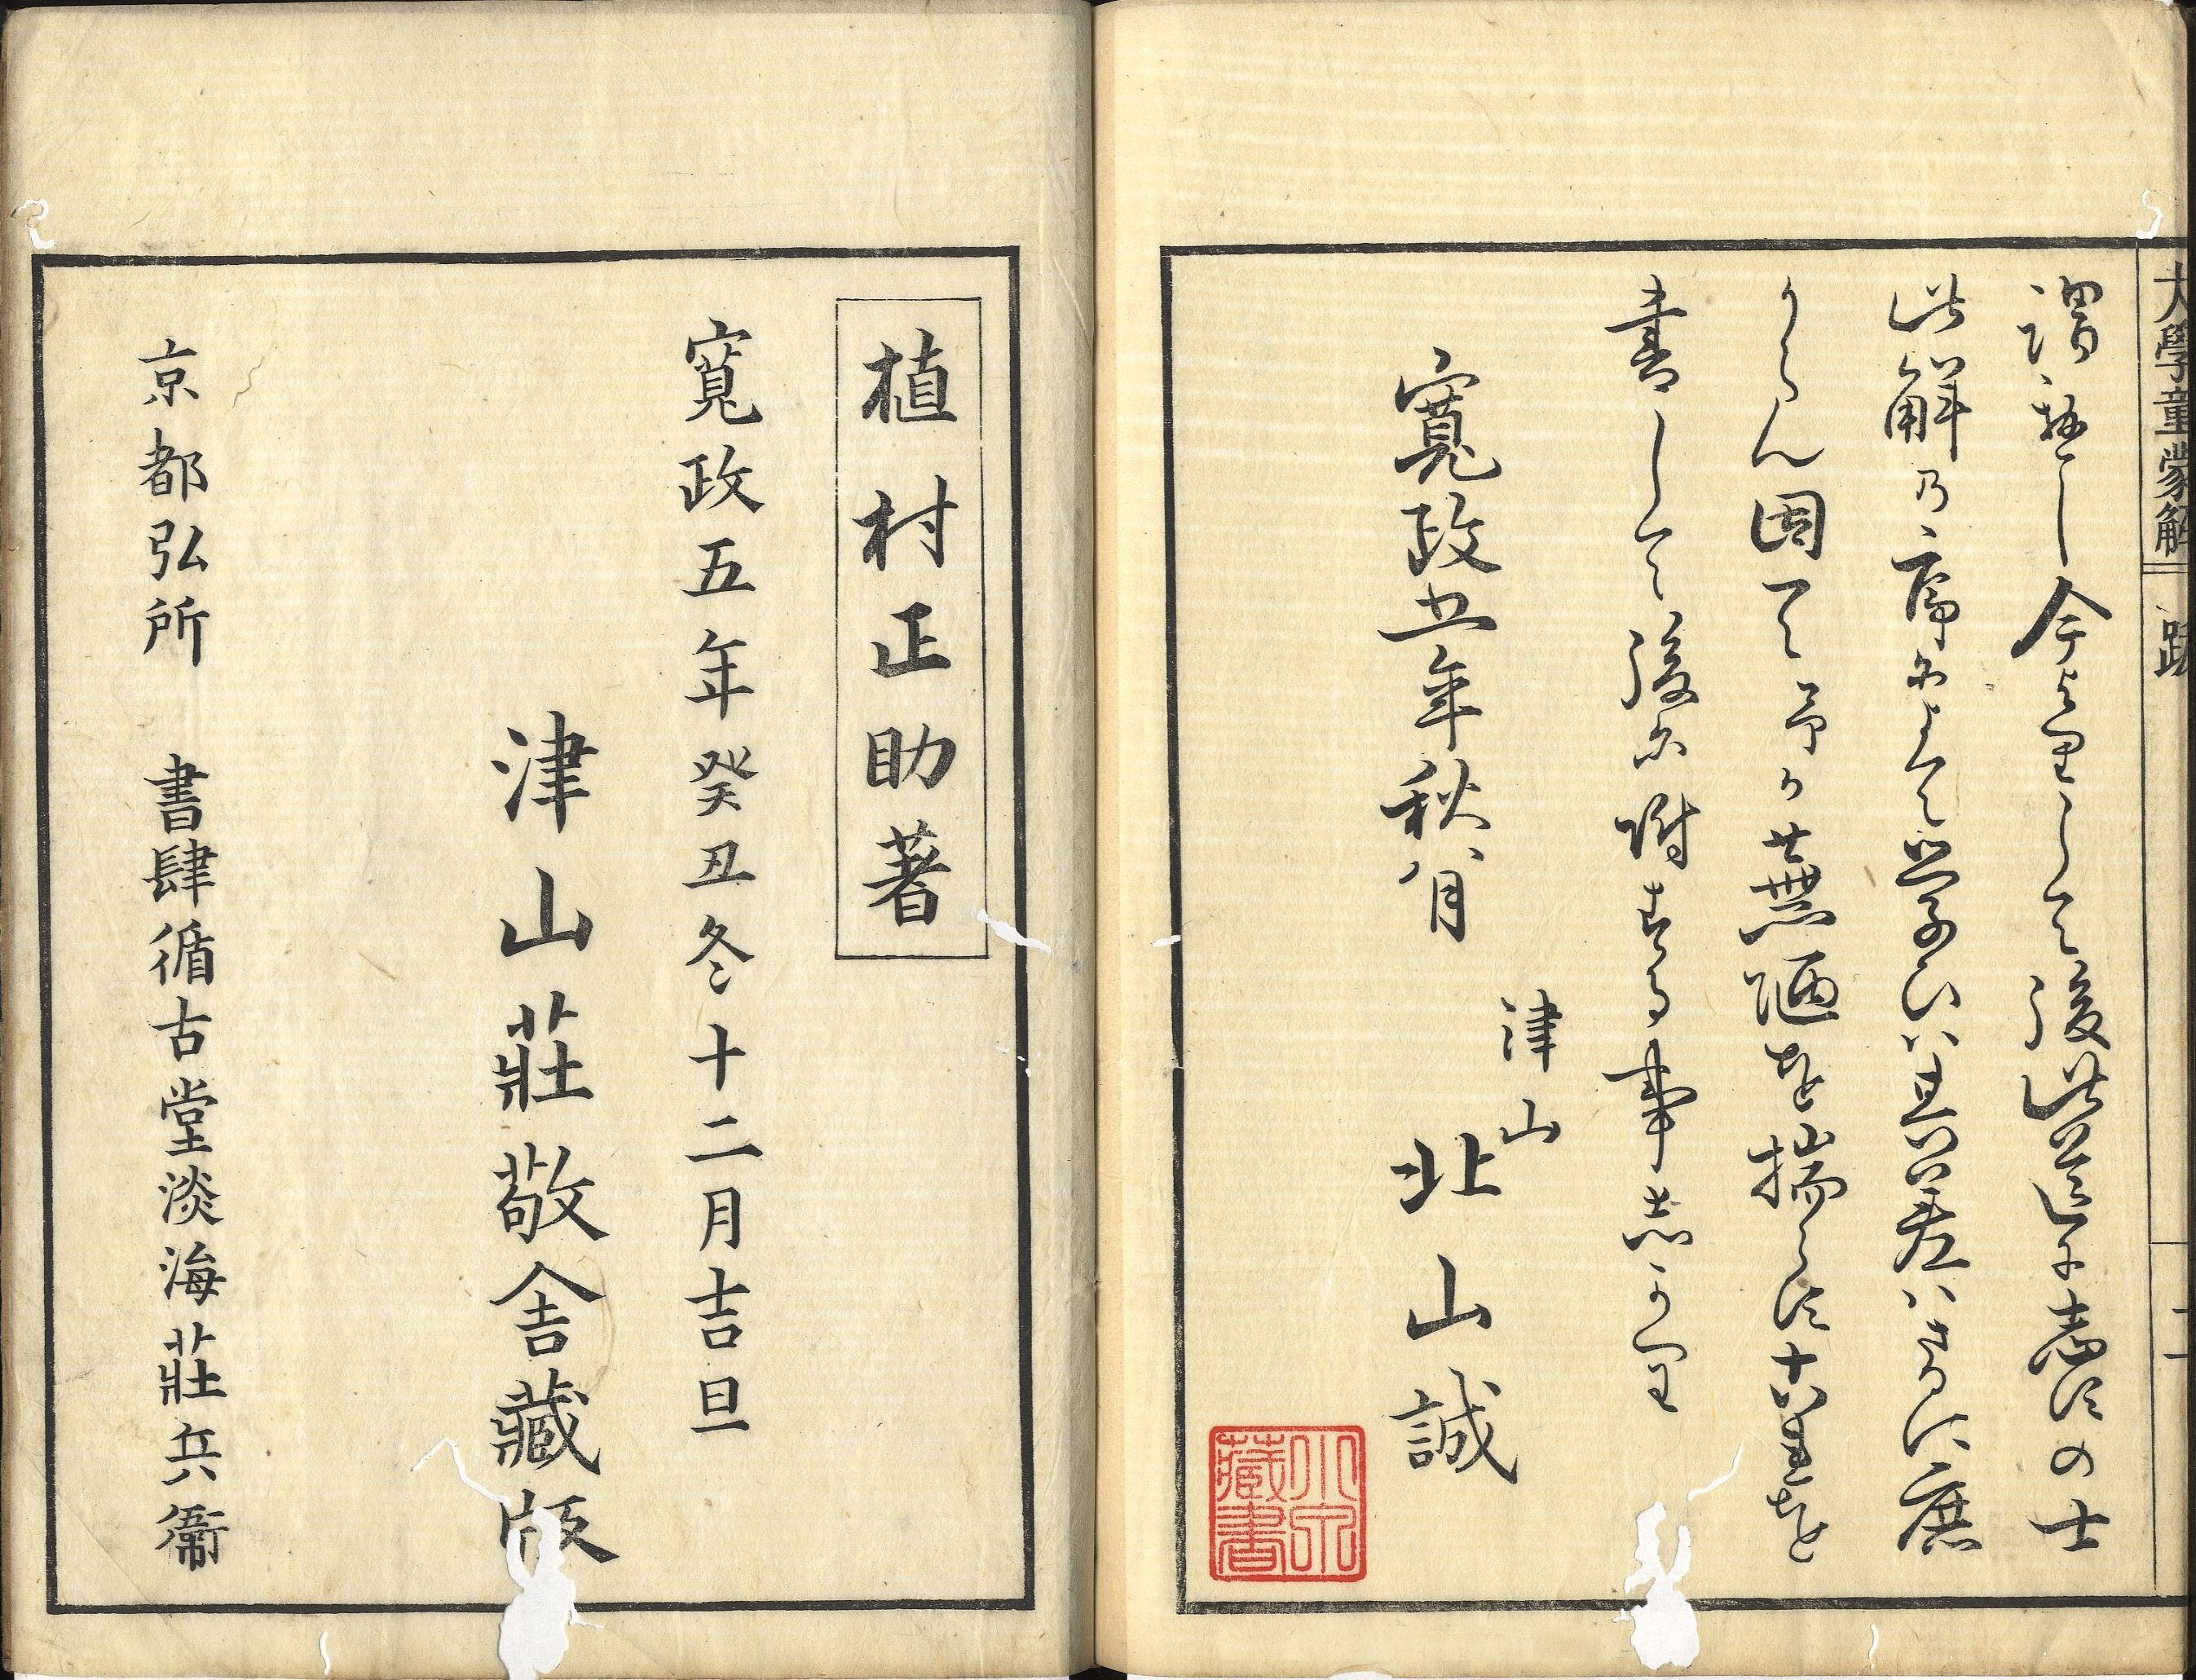 大學童蒙解 跋 二
謂極し今よりして後此道に志すの士
此解の序によりて学ひは其差はさるに庶
からん因て予か蕪陋を揣らす十六葉を
書して後に附する事志かり
寛政五年秋八月
津山
北山誠
植村正助著
寛政五年癸丑冬十二月吉旦
津山莊敬舎藏版
京都弘所 書肆循古堂淡海莊兵衞
藏書